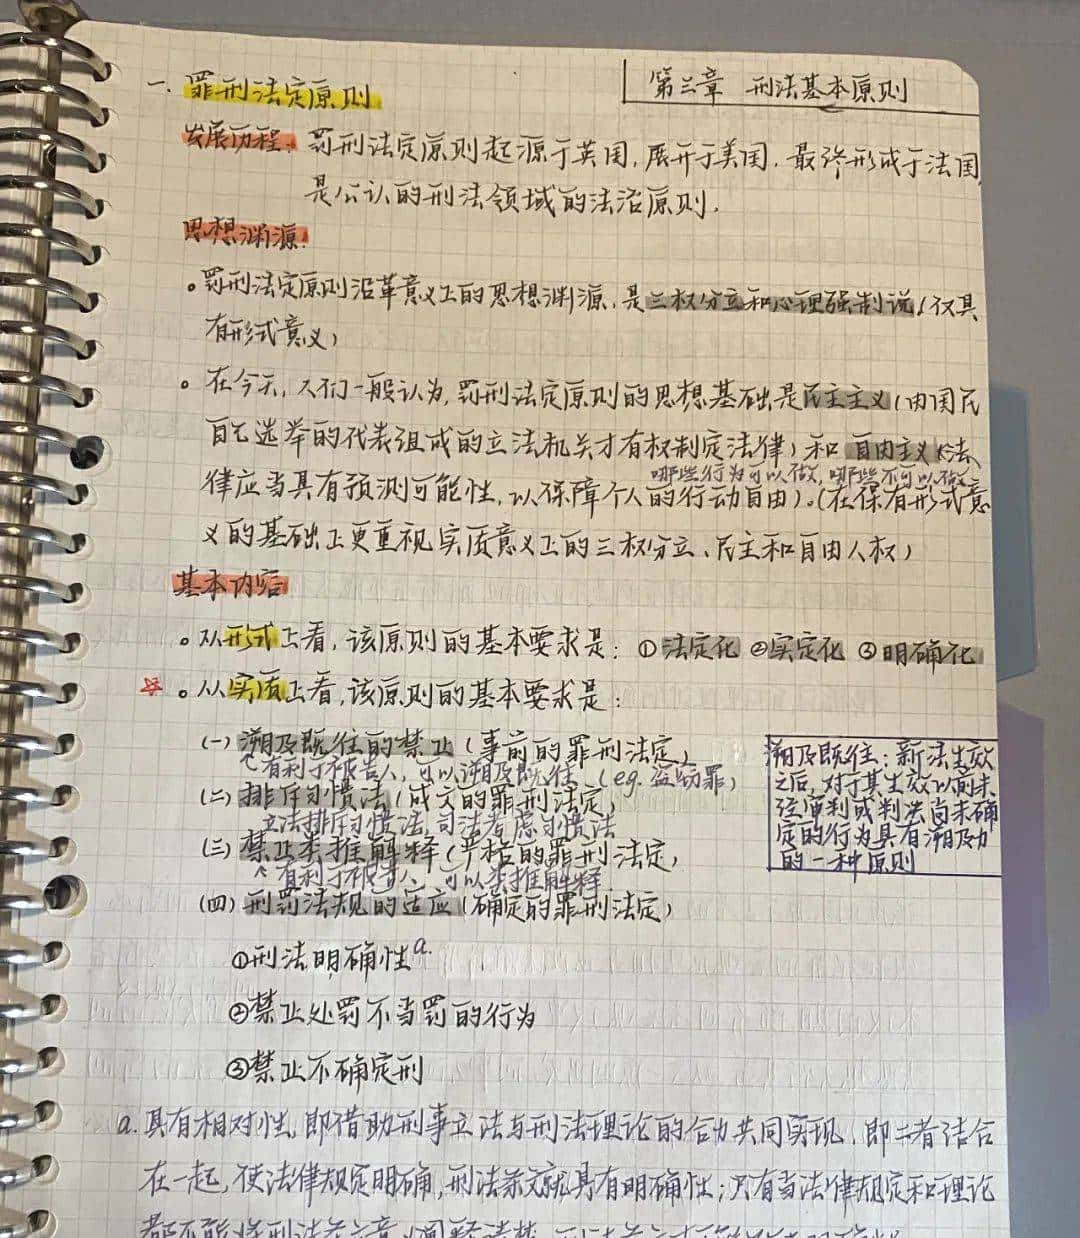 第三章 刑法基本原则
一、罪刑法定原则
发展历程：罚刑法定原则起源于英国，展开于美国，最终形成于法国，
是公认的刑法领域的法治原则。
思想渊源：
。罚刑法定原则沿革意义上的思想渊源，是三权分立和心理强制说（仅具
有形式意义）
。在今天，人们一般认为，罚刑法定原则的思想基础是民主主义（由国民
自己选举的代表组成的立法机关才有权制定法律）和自由主义（法
哪些行为可以做，哪些不可以做
律应当具有预测可能性，以保障个人的行动自由）。（在保有形式意
义的基础上更重视实质意义上的三权分立、民主和自由人权）
基本内容
。从形式上看，该原则的基本要求是：①法定化 ②实定化 ③明确化
☆。从实质上看，该原则的基本要求是：
（一）溯及既往的禁止（事前的罪刑法定）
有利于被告人，可以溯及既往（eg. 盗窃罪）
（二）排斥习惯法（成文的罪刑法定）
立法排斥习惯法，司法考虑习惯法
（三）禁止类推解释（严格的罪刑法定）
有利于被告人 可以类推解释
（四）刑罚法规的适应（确定的罪刑法定）
溯及既往：新法生效
之后，对于其生效以前未
经审判或判决尚未确
定的行为具有溯及力
的一种原则
①刑法明确性a.
②禁止处罚不当罚的行为
③禁止不确定刑
a. 具有相对性，即借助刑事立法与刑法理论的合力共同实现，即二者结合
在一起，使法律规定明确，刑法条文就具有明确性；只有当法律规定和理论
都不能将刑法条文